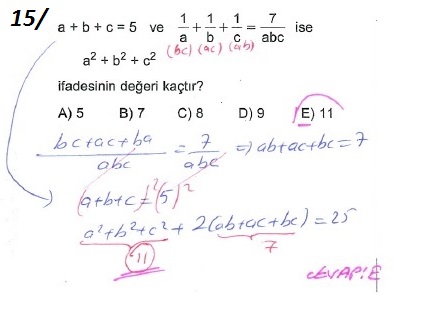 15/ a + b + c = 5 ve 1/a + 1/b + 1/c = 7/abc ise
(bc) (ac) (ab)
a² + b² + c²
ifadesinin değeri kaçtır?
A) 5 B) 7 C) 8 D) 9 E) 11
bc+ac+ba/abc = 7/abc ⇒ ab+ac+bc=7
(a+b+c)²=(5)²
a²+b²+c² + 2(ab+ac+bc)=25
11 7
CEVAP:E